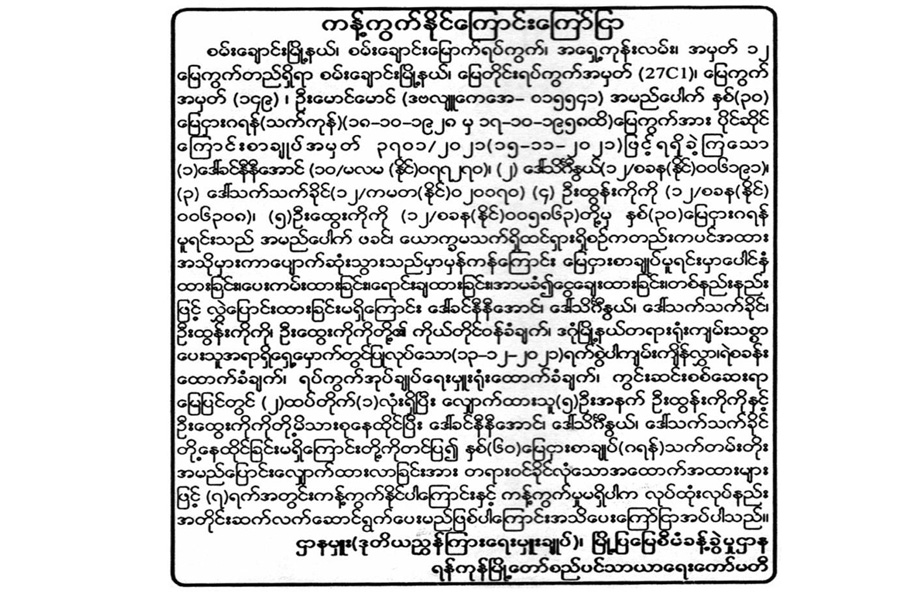 ကန့်ကွက်နိုင်ကြောင်းကြော်ငြာ
စမ်းချောင်းမြို့နယ်၊ စမ်းချောင်းမြောက်ရပ်ကွက်၊ အရှေ့ကုန်းလမ်း၊ အမှတ် ၁၂
မြေကွက်တည်ရှိရာ စမ်းချောင်းမြို့နယ်၊ မြေတိုင်းရပ်ကွက်အမှတ် (27C1)၊ မြေကွက်
အမှတ် (၁၄၉) ၊ ဦးမောင်မောင် (ဒဗလျူကေအေ– ၀၁၅၅၄၁) အမည်ပေါက် နှစ်(၃၀)
မြေငှားဂရန်(သက်ကုန်)(၁၈–၁၀–၁၉၂၈ မှ ၁၇–၁၀–၁၉၅၈ထိ)မြေကွက်အား ပိုင်ဆိုင်
ကြောင်းစာချုပ်အမှတ် ၃၇၀၁၁/၂၀၂၁(၁၅–၁၁–၂၀၂၁)ဖြင့်ရရှိခဲ့ကြသော
(၁)ဒေါ်ခင်နီနီအောင် (၁၀/မလမ (နိုင်)၀၇၇၂၇၀)၊ (၂) ဒေါ်သင်္ဂီနွယ်(၁၂/စခန(နိုင်)၀၀၆၁၉၁)၊
(၃) ဒေါ်သက်သက်ခိုင်(၁၂/ကမတ(နိုင်)၀၂၀၀၇၀) (၄) ဦးထွန်းကိုကို (၁၂/စခန(နိုင်)
၀၀၆၃၀၈)၊ (၅)ဦးထွေးကိုကို (၁၂/စခန(နိုင်)၀၀၅၈၆၃)တို့မှ နှစ်(၃၀)မြေငှားဂရန်
မူရင်းသည် အမည်ပေါက် ဖခင်၊ ယောက္ခမသက်ရှိထင်ရှားရှိစဉ်ကတည်းကပင်အထား
အသိုမှားကာပျောက်ဆုံးသွားသည်မှာမှန်ကန်ကြောင်း မြေငှားစာချုပ်မူရင်းမှာပေါင်နှံ
ထားခြင်း၊ပေးကမ်းထားခြင်း၊ရောင်းချထားခြင်း၊အာမခံ၍ငွေချေးထားခြင်း၊တစ်နည်းနည်း
ဖြင့် လွှဲပြောင်းထားခြင်းမရှိကြောင်း ဒေါ်ခင်နီနီအောင်၊ ဒေါ်သင်္ဂီနွယ်၊ ဒေါ်သက်သက်ခိုင်၊
ဦးထွန်းကိုကို၊ ဦးထွေးကိုကိုတို့၏ ကိုယ်တိုင်ဝန်ခံချက်၊ ဒဂုံမြို့နယ်တရားရုံးကျမ်းသစ္စာ
ပေးသူအရာရှိရှေ့မှောက်တွင်ပြုလုပ်သော(၁၃–၁၂–၂၀၂၁)ရက်စွဲပါကျမ်းကျိန်လွှာ၊ရဲစခန်း
ထောက်ခံချက်၊ ရပ်ကွက်အုပ်ချုပ်ရေးမှူးရုံးထောက်ခံချက်၊ ကွင်းဆင်းစစ်ဆေးရာ
မြေပြင်တွင် (၂)ထပ်တိုက်(၁)လုံးရှိပြီး လျှောက်ထားသူ(၅)ဦးအနက် ဦးထွန်းကိုကိုနှင့်
ဦးထွေးကိုကိုတို့မိသားစုနေထိုင်ပြီး ဒေါ်ခင်နီနီအောင်၊ ဒေါ်သင်္ဂီနွယ်၊ ဒေါ်သက်သက်ခိုင်
တို့နေထိုင်ခြင်းမရှိကြောင်းတို့ကိုတင်ပြ၍ နှစ်(၆၀)မြေငှားစာချုပ်(ဂရန်)သက်တမ်းတိုး
အမည်ပြောင်းလျှောက်ထားလာခြင်းအား တရားဝင်ခိုင်လုံသောအထောက်အထားများ
ဖြင့် (၇)ရက်အတွင်းကန့်ကွက်နိုင်ပါကြောင်းနှင့် ကန့်ကွက်မှုမရှိပါက လုပ်ထုံးလုပ်နည်း
အတိုင်းဆက်လက်ဆောင်ရွက်ပေးမည်ဖြစ်ပါကြောင်းအသိပေးကြော်ငြာအပ်ပါသည်။
ဌာနမှူး(ဒုတိယညွှန်ကြားရေးမှူးချုပ်)၊ မြို့ပြမြေစီမံခန့်ခွဲမှုဌာန
ရန်ကုန်မြို့တော်စည်ပင်သာယာရေးကော်မတီ